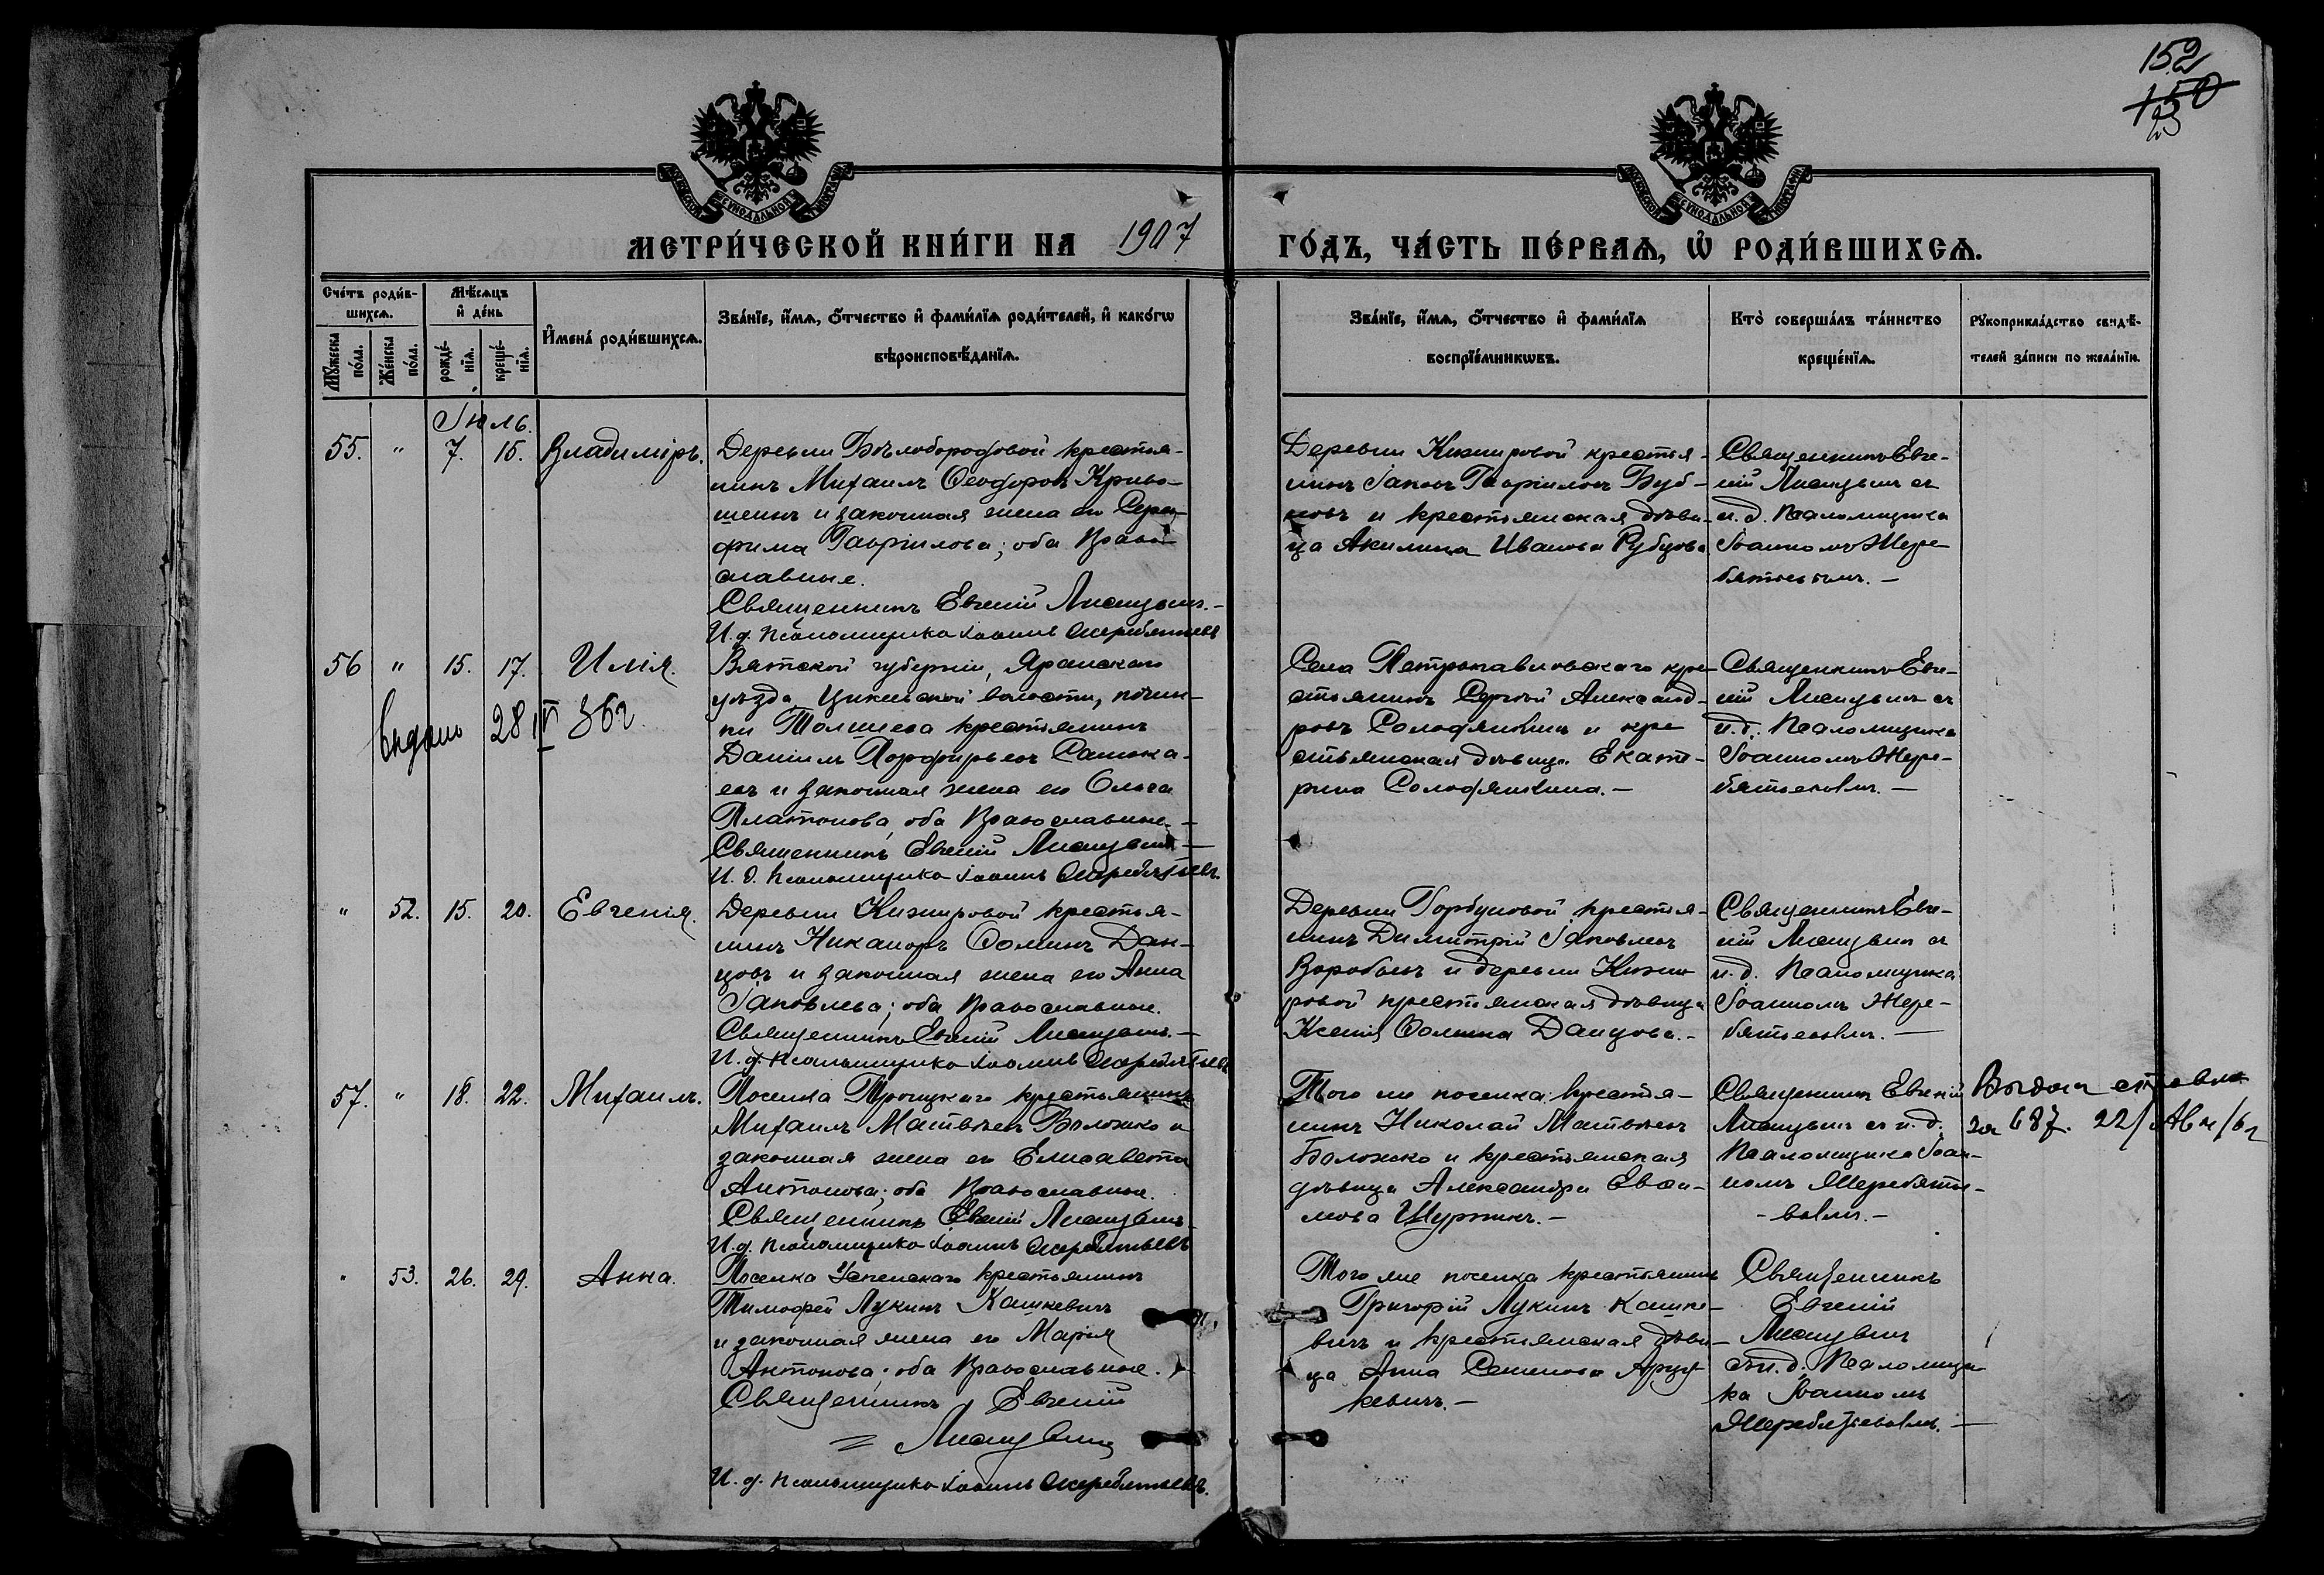 152
150
25
МЕТРИ́ЧЕСКОЙ КНИ́ГИ НА 1907 ГО́ДЪ, ЧА́СТЬ ПЕ́РВАѦ, Ѡ҆ РОДИ́ВШИХСѦ.
Сче́тъ роди́в-
шихсѧ.
Мꙋ́жеска по́ла.
Же́нска по́ла.
Мѣ́сѧцъ и҆ де́нь
рожде́-нїѧ.
креще́-нїѧ.
И҆мена̀ роди́вшихсѧ.
Зва́нїе, и҆́мѧ, ѻ҆́тчество и҆ фами́лїѧ роди́телей, и҆ како́гѡ
вѣроисповѣ́данїѧ.
Зва́нїе, и҆́мѧ, ѻ҆́тчество и҆ фами́лїѧ
воспрїе́мникѡвъ.
Кто̀ соверша́лъ та́инство
креще́нїѧ.
Рꙋкоприкла́дство свидѣ́-
телей за́писи по жела́нїю.
Іюль.
55. " 7. 15. Владиміръ.
Деревни Бѣлобородовой крестья-
нинъ Михаилъ Ѳеодоровъ Криво-
шеинъ и законная жена его Сера-
фима Гавріилова; оба Право-
славные.
Священникъ Евгеній Лисицынъ.-
И. д. Псаломщика Іоаннъ Жеребятьевъ
Деревни Кижировой крестья-
нинъ Іаковъ Гавріиловъ Буб-
новъ и крестьянская дѣви-
ца Акилина Иванова Рубцова
Священникъ Евге-
ній Лисицынъ съ
и. д. Псаломщика
Іоанномъ Жере-
бятьевымъ. -
56 " 15. 17. Илія.
выдано 28/II 36г.
Вятской губерніи, Яранскаго
уѣзда, Цикеевской волости, почин-
ка крестьянинъ
Даніилъ Порфирьевъ
и законная жена его Ольга
Платонова, оба Православные.-
Священникъ Евгеній Лисицынъ -
И. д. Псаломщика Іоаннъ Жеребятьевъ.
Села Петропавловскаго кре-
стьянинъ Сергѣй Александ-
ровъ Солодянкинъ и кре-
стьянская дѣвица Екате-
рина Солодянкина. -
Священникъ Евге-
ній Лисицынъ съ
и. д. Псаломщика
Іоанномъ Жере-
бятьевымъ. -
" 52. 15. 20. Евгенія.
Деревни Кижировой крестья-
нинъ Никаноръ Ѳоминъ Дан-
цовъ и законная жена его Анна
Іаковлева; оба Православные.
Священникъ Евгеній Лисицынъ. -
И. д. Псаломщика Іоаннъ Жеребятьевъ
Деревни Горбуновой крестья-
нинъ Димитрій Іаковлевъ
Воробьевъ и деревни Кижи-
ровой крестьянская дѣвица
Ксенія Ѳомина Данцова. -
Священникъ Евге-
ній Лисицынъ съ
и. д. Псаломщика
Іоанномъ Жере-
бятьевымъ. -
57. " 18. 22. Михаилъ.
Поселка Троицкаго крестьянинъ
Михаилъ Матвѣевъ Воложко и
законная жена его Елисавета
Антонова; оба Православные.
Священникъ Евгеній Лисицынъ
И. д. Псаломщика Іоаннъ Жеребятьевъ
Того же поселка крестья-
нинъ Николай Матвѣевъ
Воложко и крестьянская
дѣвица Александра
-
Священникъ Евгеній
Лисицынъ съ и. д.
Псаломщика Іоан-
номъ Жеребятье-
-вымъ. -
Выдана справка
за 687. 22/
" 53. 26. 29. Анна.
Поселка Успенскаго крестьянинъ
Тимофей Лукинъ Кашкевичъ
и законная жена его Марія
Антонова; оба Православные.
Священникъ Евгеній
Лисицынъ
И. д. Псаломщика Іоаннъ Жеребятьевъ.
Того же поселка крестьянинъ
Григорій Лукинъ Кашке-
вичъ и крестьянская дѣви-
ца Анна Семенова
кевичъ. -
Священникъ
Евгеній
Лисицынъ
съ и. д. Псаломщи-
ка Іоанномъ
Жеребятьевымъ. -